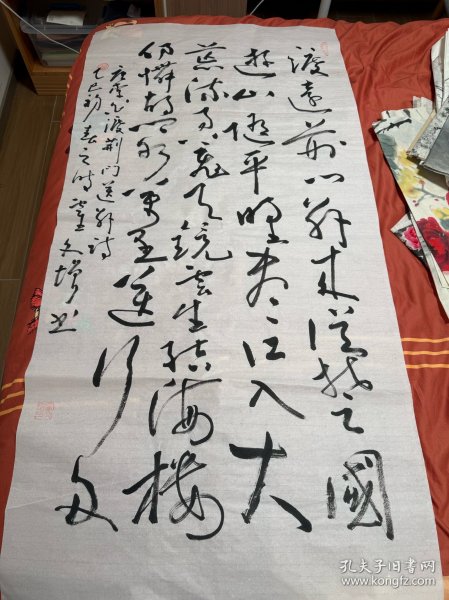 渡遠荊门外来從楚國
遊山随平野尽江入大
荒流月下飛天鏡雲生結海楼
仍憐故鄉水万里送行舟
李白渡荆门送别诗
乙巳初春之時 文增书
孔夫子旧书网
www.kongfz.com